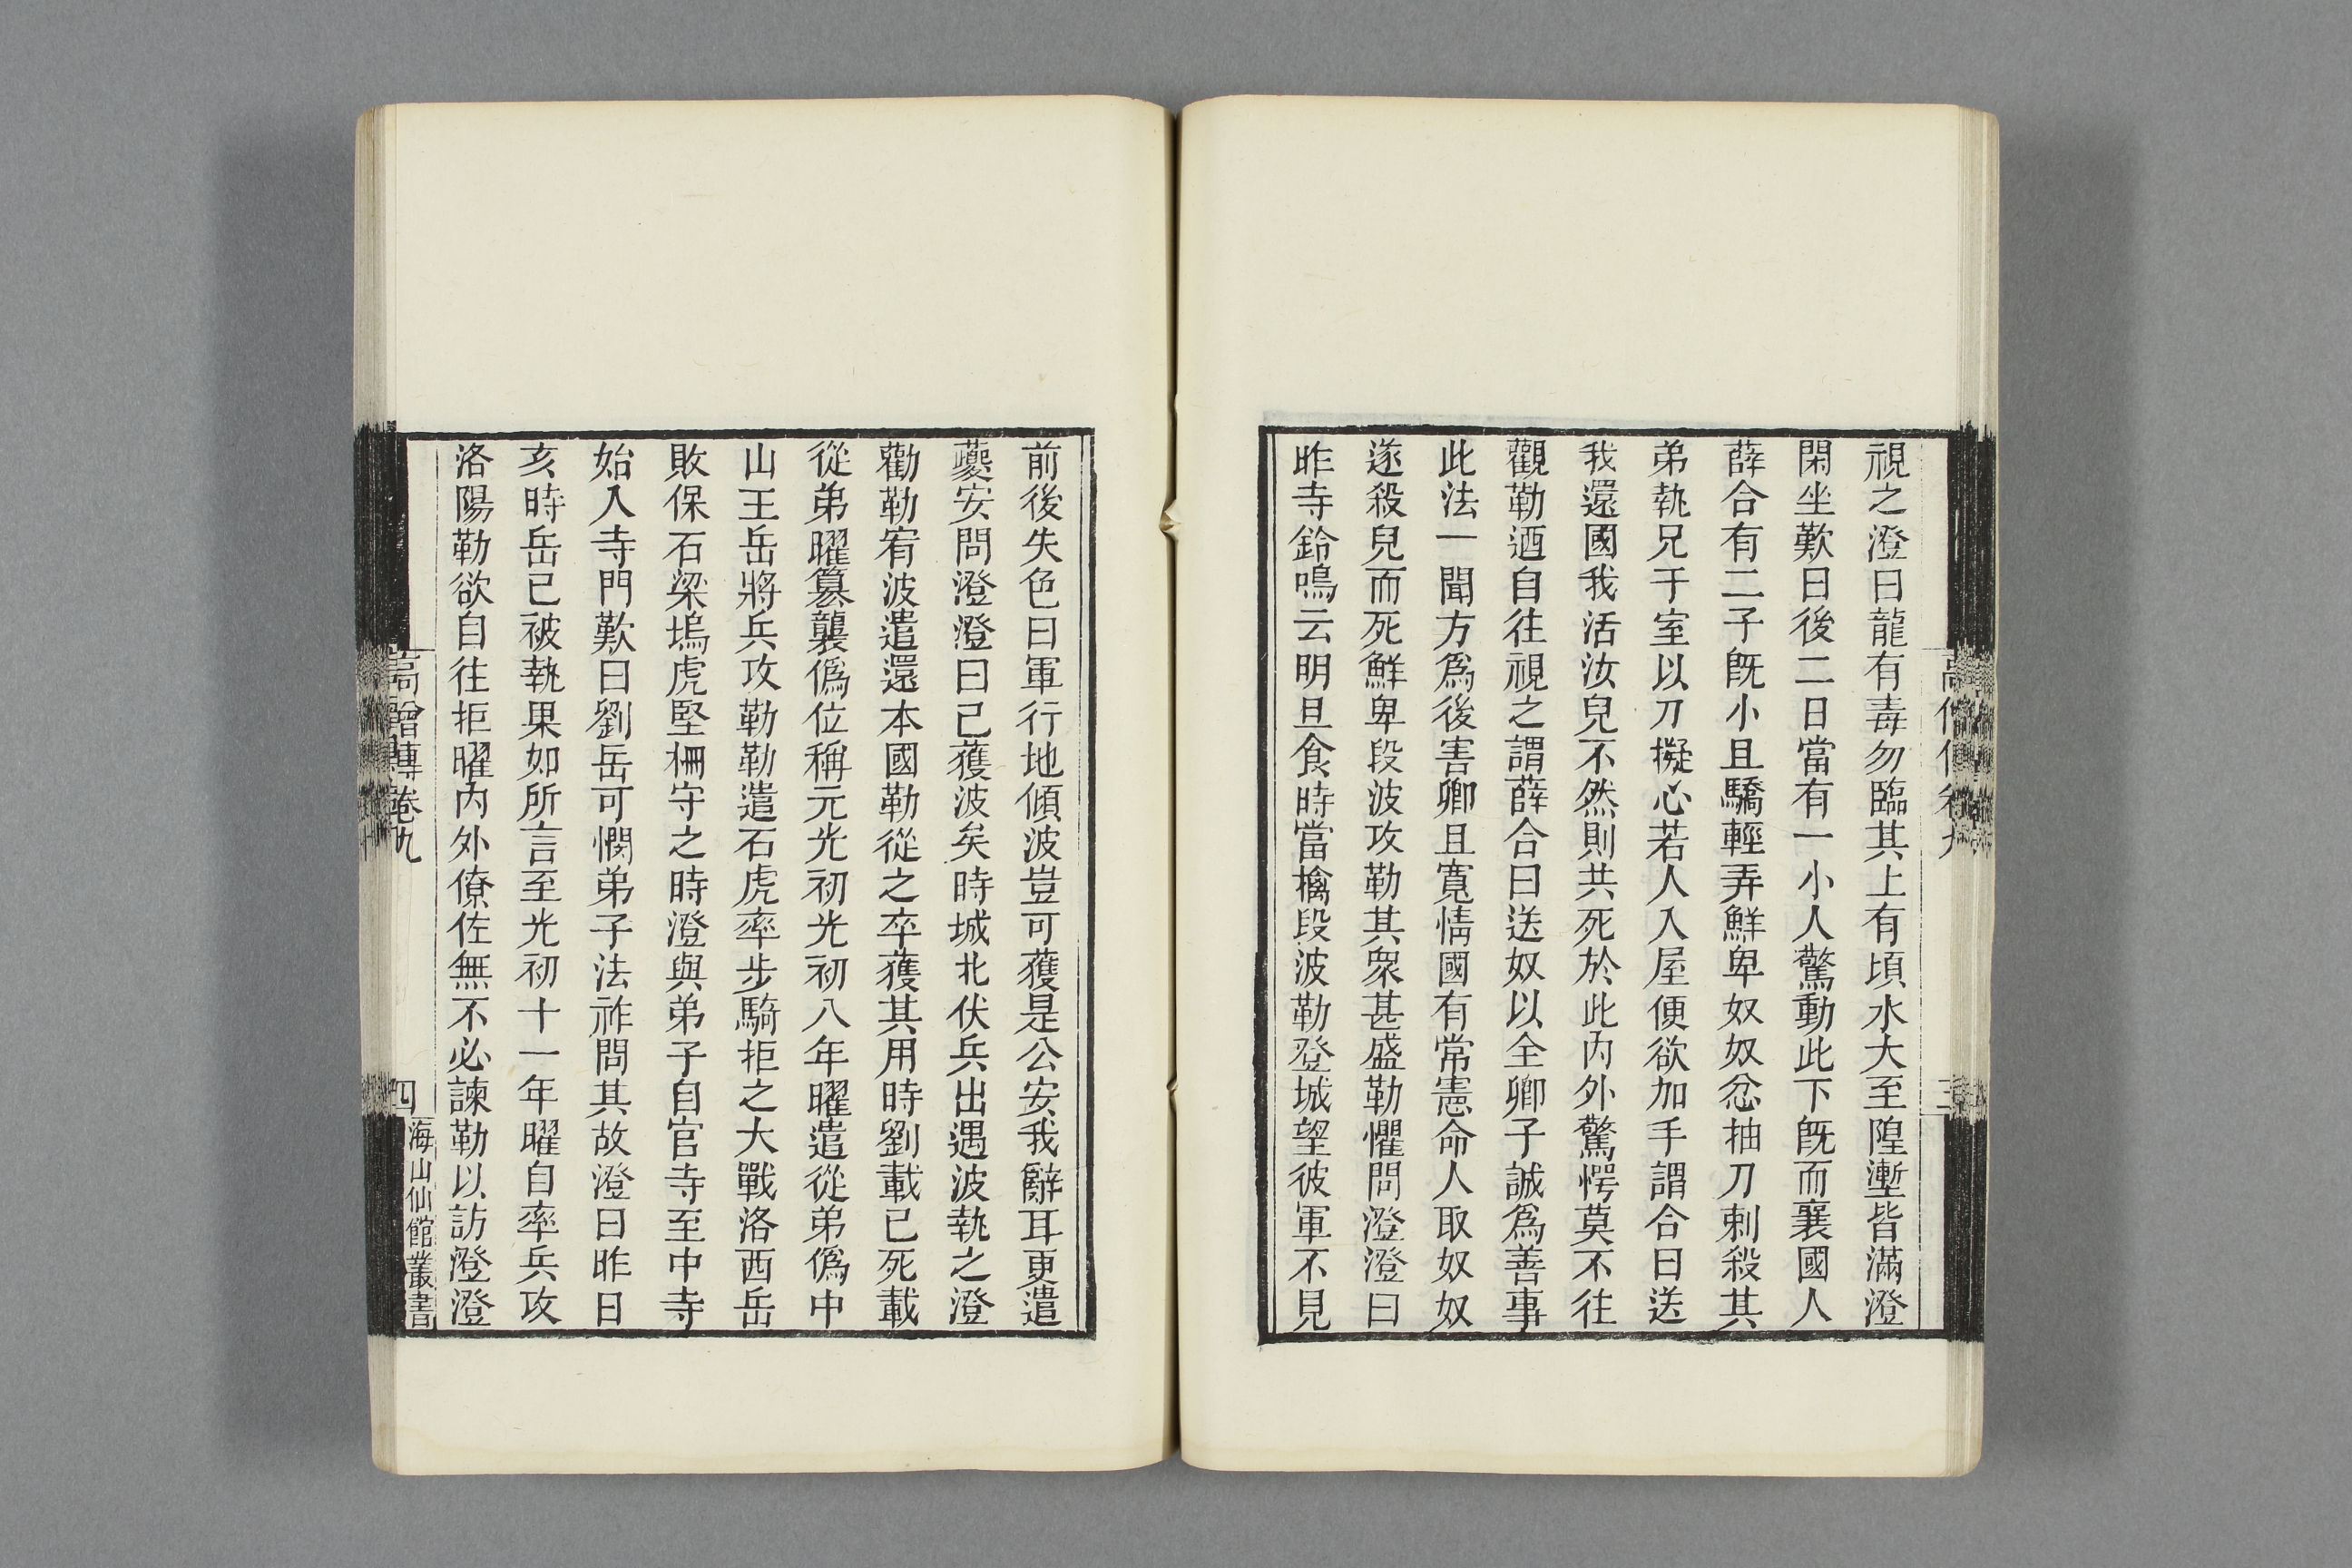 視之澄曰龍有毒勿臨其上有頃水大至隍壍皆滿澄
閑坐歎曰後二日當有一小人驚動此下旣而襄國人
薛合有二子旣小且驕輕弄鮮卑奴奴忿抽刀刺殺其
弟執兄于室以刀擬心若人入屋便欲加手謂合曰送
我還國我活汝兒不然則共死於此內外驚愕莫不往
觀勒迺自往視之謂薛合曰送奴以全卿子誠爲善事
此法一聞方爲後害卿且寬情國有常憲命人取奴奴
遂殺兒而死鮮卑段波攻勒其衆甚盛勒懼問澄澄曰
昨寺鈴鳴云明旦食時當擒段波勒登城望彼軍不見
前後失色曰軍行地傾波豈可獲是公安我辭耳更遣
夔安問澄澄曰已獲波矣時城北伏兵出遇波執之澄
勸勒宥波遣還本國勒從之卒獲其用時劉載已死載
從弟曜簒襲僞位稱元光初光初八年曜遣從弟僞中
山王岳將兵攻勒勒遣石虎率步騎拒之大戰洛西岳
敗保石梁塢虎堅柵守之時澄與弟子自官寺至中寺
始入寺門歎曰劉岳可憫弟子法祚問其故澄曰昨日
亥時岳已被執果如所言至光初十一年曜自率兵攻
洛陽勒欲自往拒曜內外僚佐無不必諫勒以訪澄澄
高僧傳卷九
四
海山仙館叢書